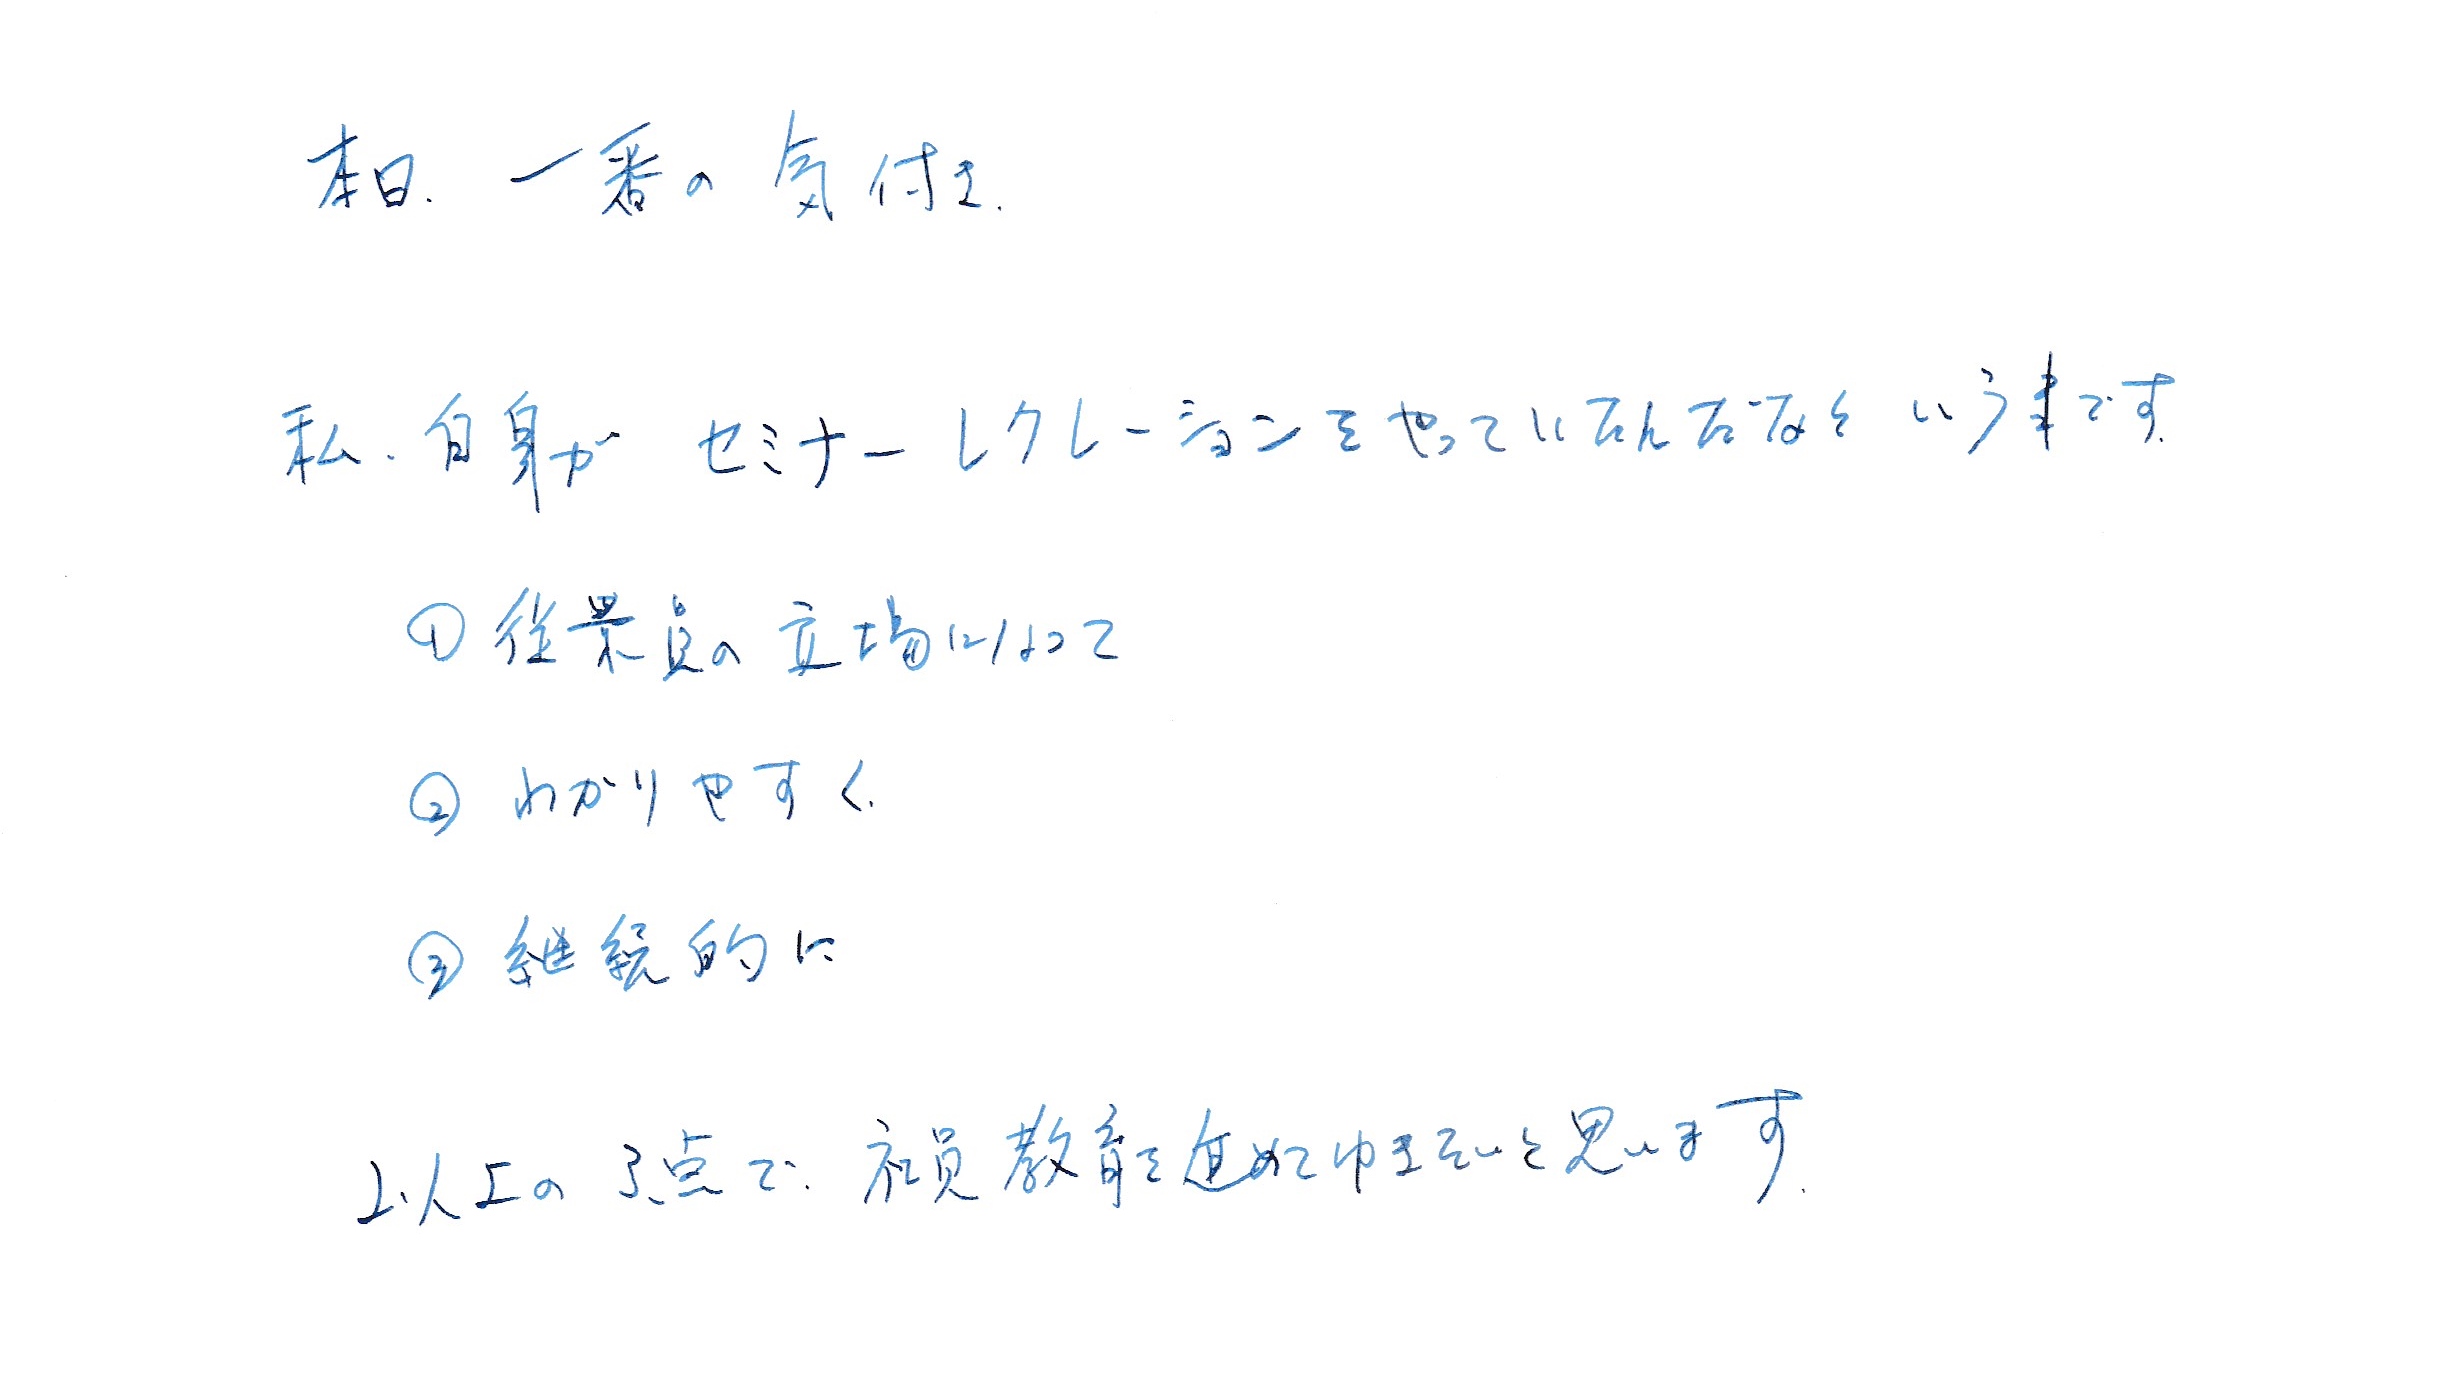 本日、一番の気付き、
私、自身がセミナーレクレーションをやっていたんだなという事です。
①従業員の立場になって
②わかりやすく、
③継続的に
以上の3点で、社員教育を進めてゆきたいと思います。